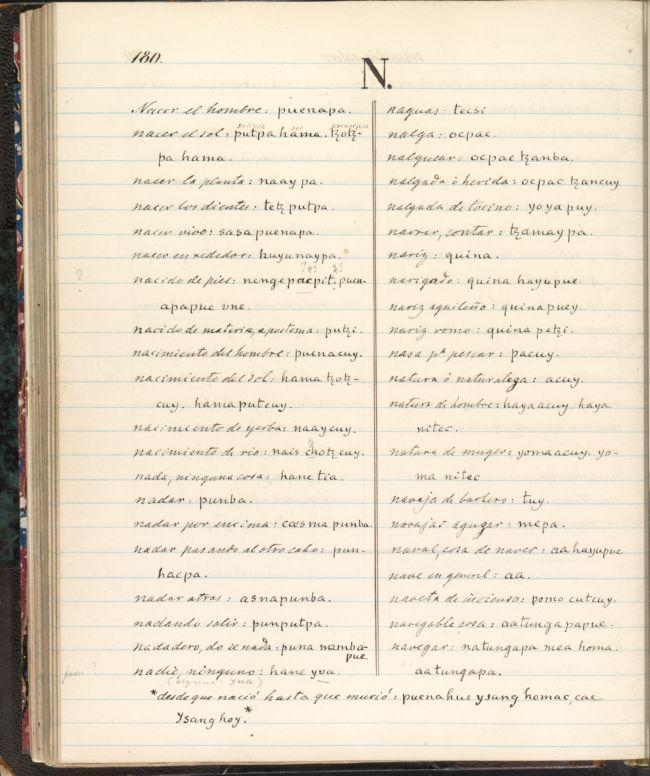 180.
N.
Nacer el hombre: puenapa.
nacer el sol: putpa hama. tzotz-
pa hama.
nacer la planta: naaypa.
nacer los dientes: tetz putpa.
nacer vivo: sasa puenapa.
nacer en rededor: tuyunaypa.
nacido de pies: nengepaepit, puen-
apapue vne.
nacido de materia, apostema: putzi.
nacimiento del hombre: puenacuy.
nacimiento del sol: hama tzotz-
cuy. hamaputcuy.
nacimiento de yerba: naaycuy.
nacimiento de rio: nais chotzcuy.
nada, ninguna cosa: hane tia.
nadar: punba.
nadar por encima: cæsma punba.
nadar pasando al otro cabo: pun-
hacpa.
nadar atras: asnapunba.
nadando salir: punputpa.
nadadero, do se nada: puna namba-
pue.
nadie, ninguno: hane yva.
(alguno yva)
naguas: tecsi.
nalga: ocpac.
nalguear: ocpac tzanba.
nalgada ò herida: ocpac tzancuy.
nalgada de tocino: yoya puy.
narrar, contar: tzamaypa.
nariz: quina.
narigado: quina hayupue.
nariz aguileño: quina puey.
nariz romo: quina petzi.
nasa pª pescar: pacuy.
natura ò naturaleza: acuy.
natura de hombre: haya acuy. haya
nitec.
natura de muger: yoma acuy. yo-
ma nitec
navaja de barbero: tuy.
navajas aguzar: mepa.
naval, cosa de naves: aa hayupue.
nave en general: aa.
naveta de incienso: pomo cutcuy.
navegable cosa: aatungapapue.
navegar: natungapa mea homa.
aatungapa.
*desde que nació hasta que murió: puenahue ysang homac, cae
ysang hoy.*